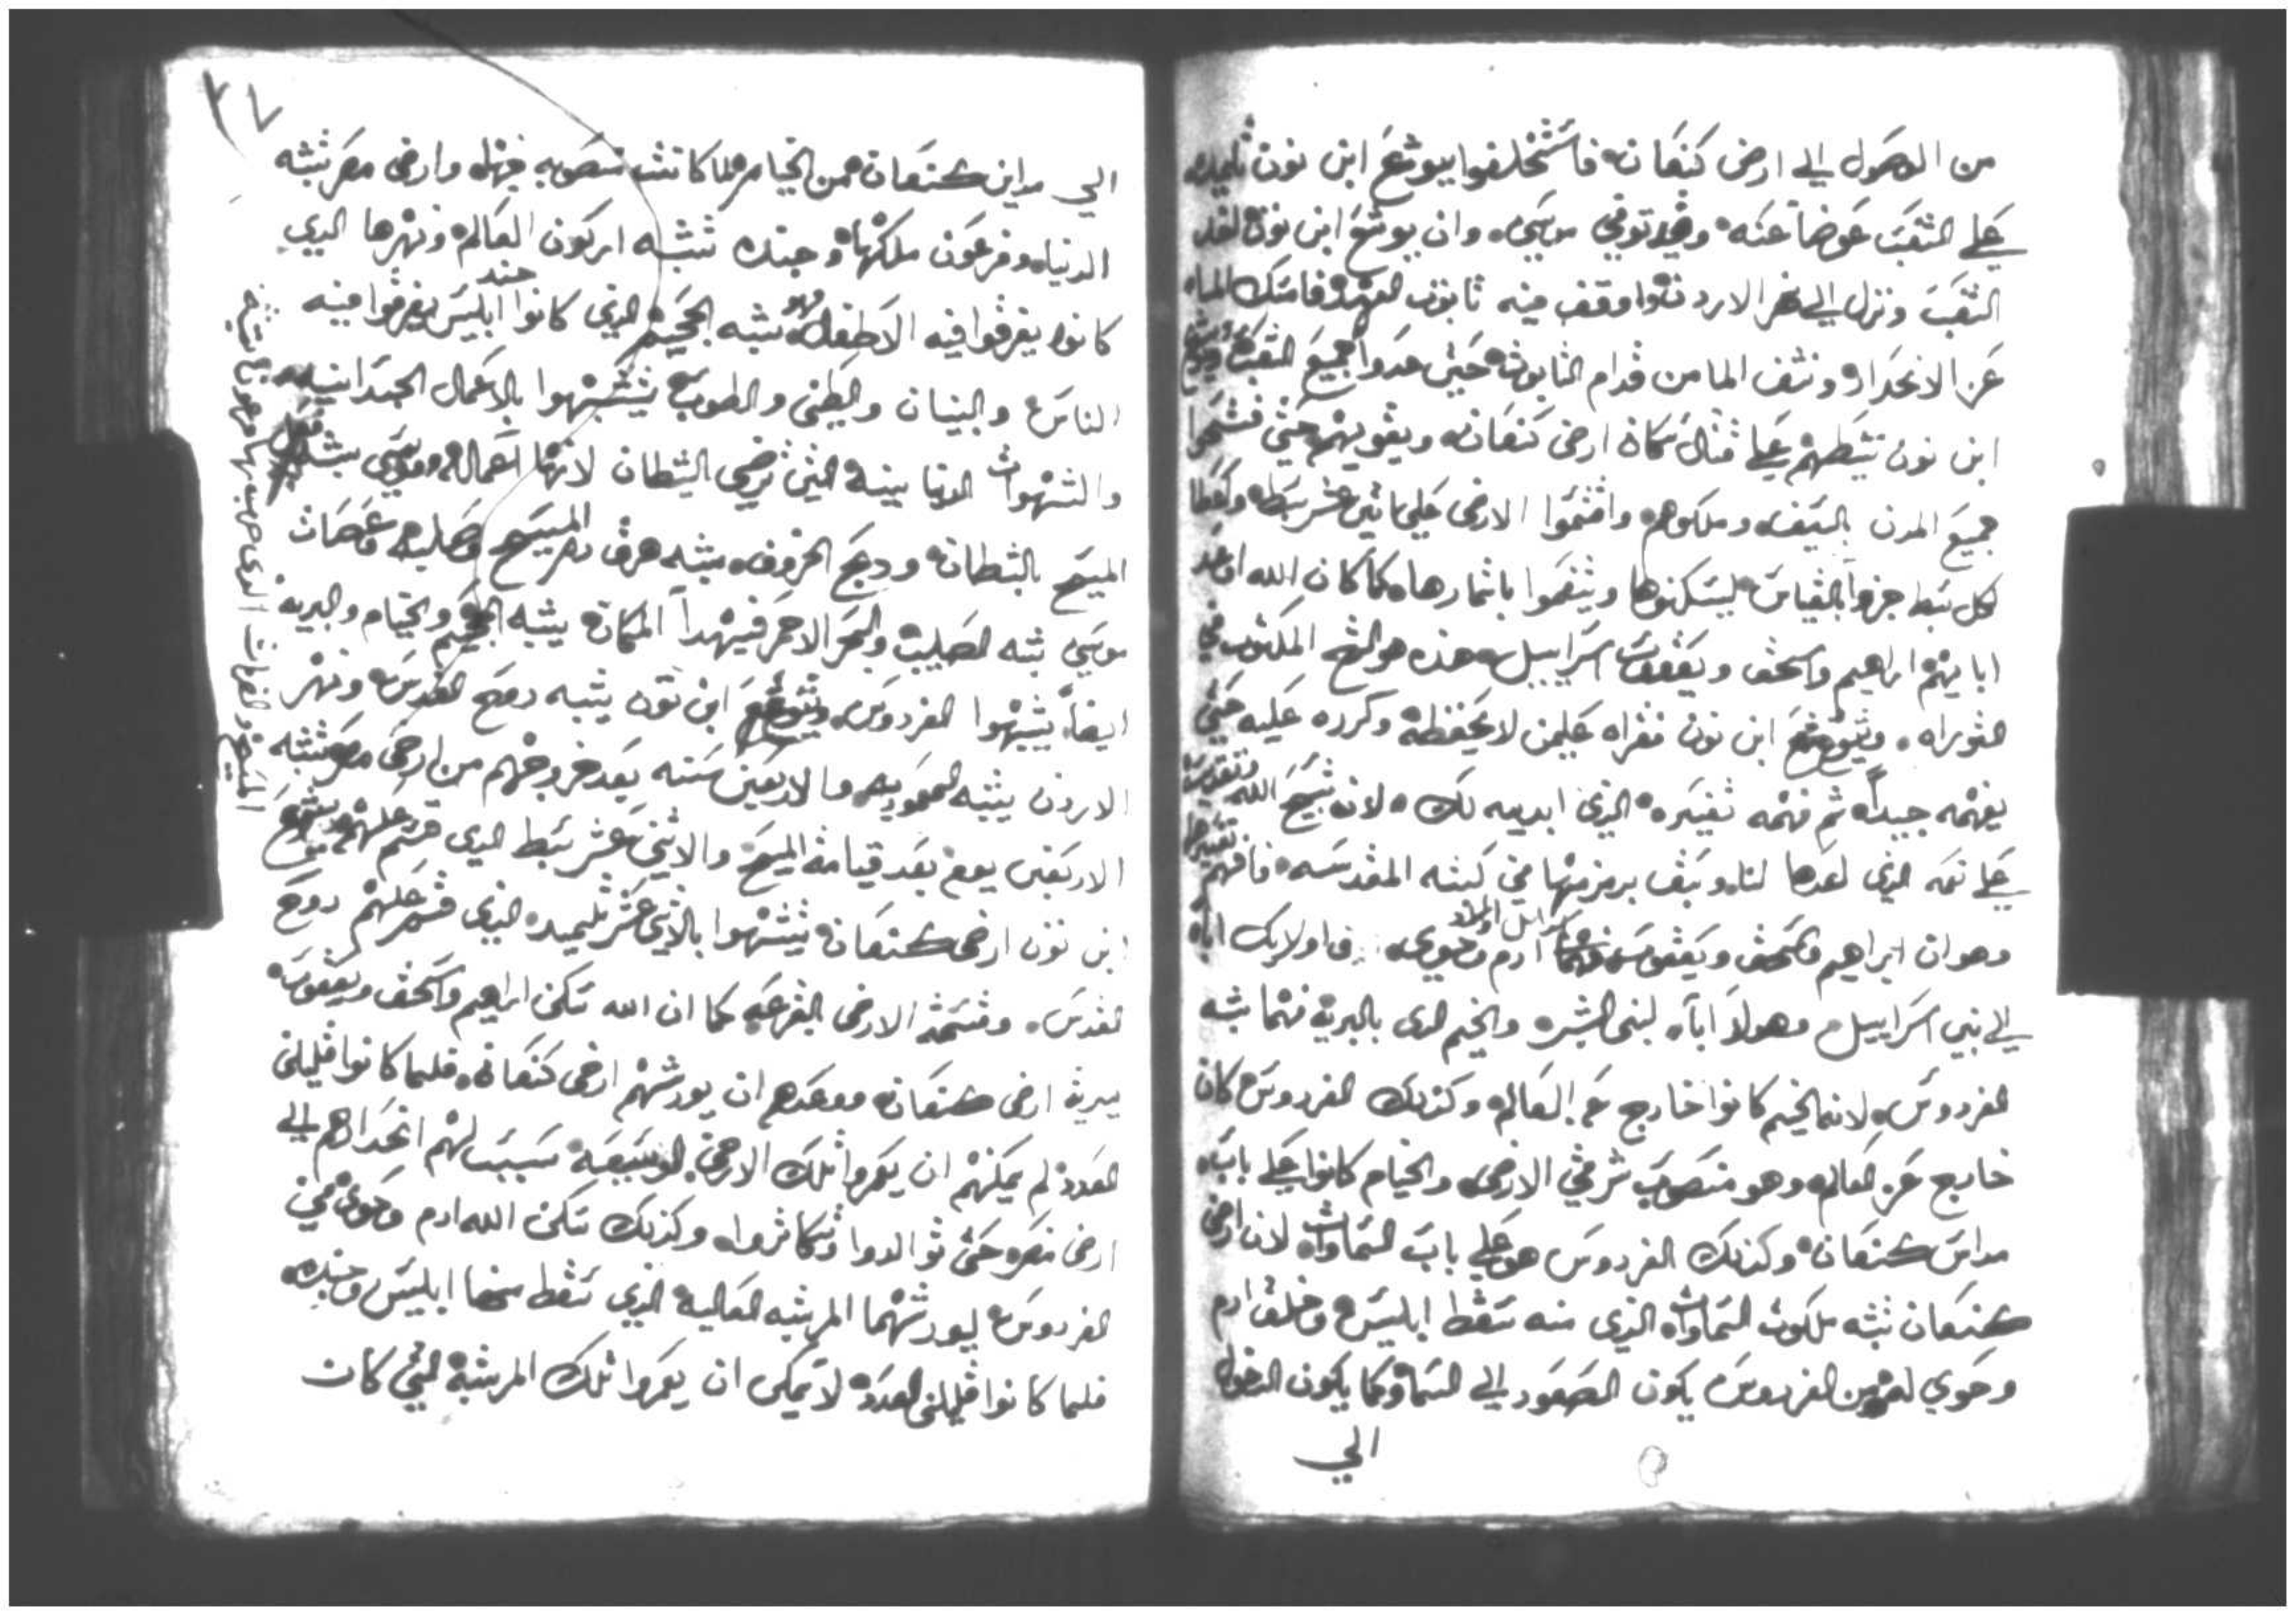 من الوصول الي ارض كنعان فاستخلفوا يوشع ابن نون تلميده
علي الشعب عوضاً عنه وقد توفي موسي وان يوشع ابن نون لقد
الشعب ونزل الي نهر الاردن واوقف فيه تابوت العهد فامسك الماء
عن الانحدار ونشف الما من قدام التابوت حتي عدوا جميع الشعب ويوشع
ابن نون علي قتال سكان ارض كنعان ويقويهم حتي فتحوا
جميع المدن بالسيف وملكوهم واقتسموا الارض علي اثني عشر سبط
لكل سبط جزوا بالقياس ليسكنوها ويتنعموا باثمارها كما كان الله
ابايهم ابراهيم واسحق ويعقوب اسراييل هذه هو الشرح المكتوب في
التوراه ويشوع ابن نون فقراه علي من لا يحفظه وكرره عليه حتي
يفهمه جيداً ثم فهمه تفسيره الذي ابديه لك لان شبح الله
علي نعمه الذي اعدها لنا وسبق برمز منها في كتبه المقدسه فافهم تفسيرها
وهو ان ابراهيم واسحق ويعقوب ادم وحوي اوليك ابا
الي بني اسراييل وهولا اباء لبني البشر والخيم الدي بالبريه فهما يشبه
الفردوس لانه الخيم كانوا خارج عن العالم وكذلك الفردوس كان
خارج عن العالم وهو منصوب شرقي الارض والخيام كانوا علي باب
مداين كنعان وكذلك الفردوس هو علي باب السماوات لان ارض
كنعان تشبه ملكوت السماوات الذي منه سقط ابليس وخلق ادم
وحوي من الفردوس يكون الصعود الي السما وكما يكون الدخول
الي
٢٧
الي مداين كنعان من الخيام كانت منصوبه وارض مصر تشبه
الدنيا وفرعون ملكها وجنده تشبه اركون العالم ونهرها الدي
كانوا يغرقوا فيه الاطفال فهو يشبه الجحيم الذي كانوا جند ابليس يغرقوا فيه
الناس والبنيان والطين والطوب يشبهوا بالاعمال الجسدانيه
والشهوات الدنيا التي ترضي الشيطان لانها اعماله وموسي يشبه
المسيح بالشيطان ودبح الخروف يشبه هرق دم المسيح وصليبه وعصات
موسي تشبه الصليب والبحر الاحمر المكان يشبه الجحيم والخيام والبريه
ايضاً يشبهوا الفردوس ويشوع ابن نون يشبه روح القدس ونهر
الاردن يشبه المعموديه والاربعين سنه بعد خروجهم من ارض مصر تشبه
الاربعين يوم بعد قيامة المسيح والاثني عشر سبط الدي قسم عليهم يشوع
ابن نون ارض كنعان يشبهوا بالاثني عشر تلميد الذي قسم عليهم روح
القدس وقسمة الارض بالقرعه كما ان الله سكن ابراهيم واسحق ويعقوب
بريه ارض كنعان ووعدهم ان يورثهم ارض كنعان فلما كانوا قليلين
العدد لم يمكنهم ان يعمروا تلك الارض الوسيعه سبب لهم انحدارهم الي
ارض مصر حتي توالدوا وتكاثروا وكذلك سكن الله ادم وحوي في
الفردوس ليورثهما المرتبه العاليه الذي سقط منها ابليس وجنده
فلما كانوا قليلين العدد لا يمكن ان يعمروا تلك المرتبة التي كان